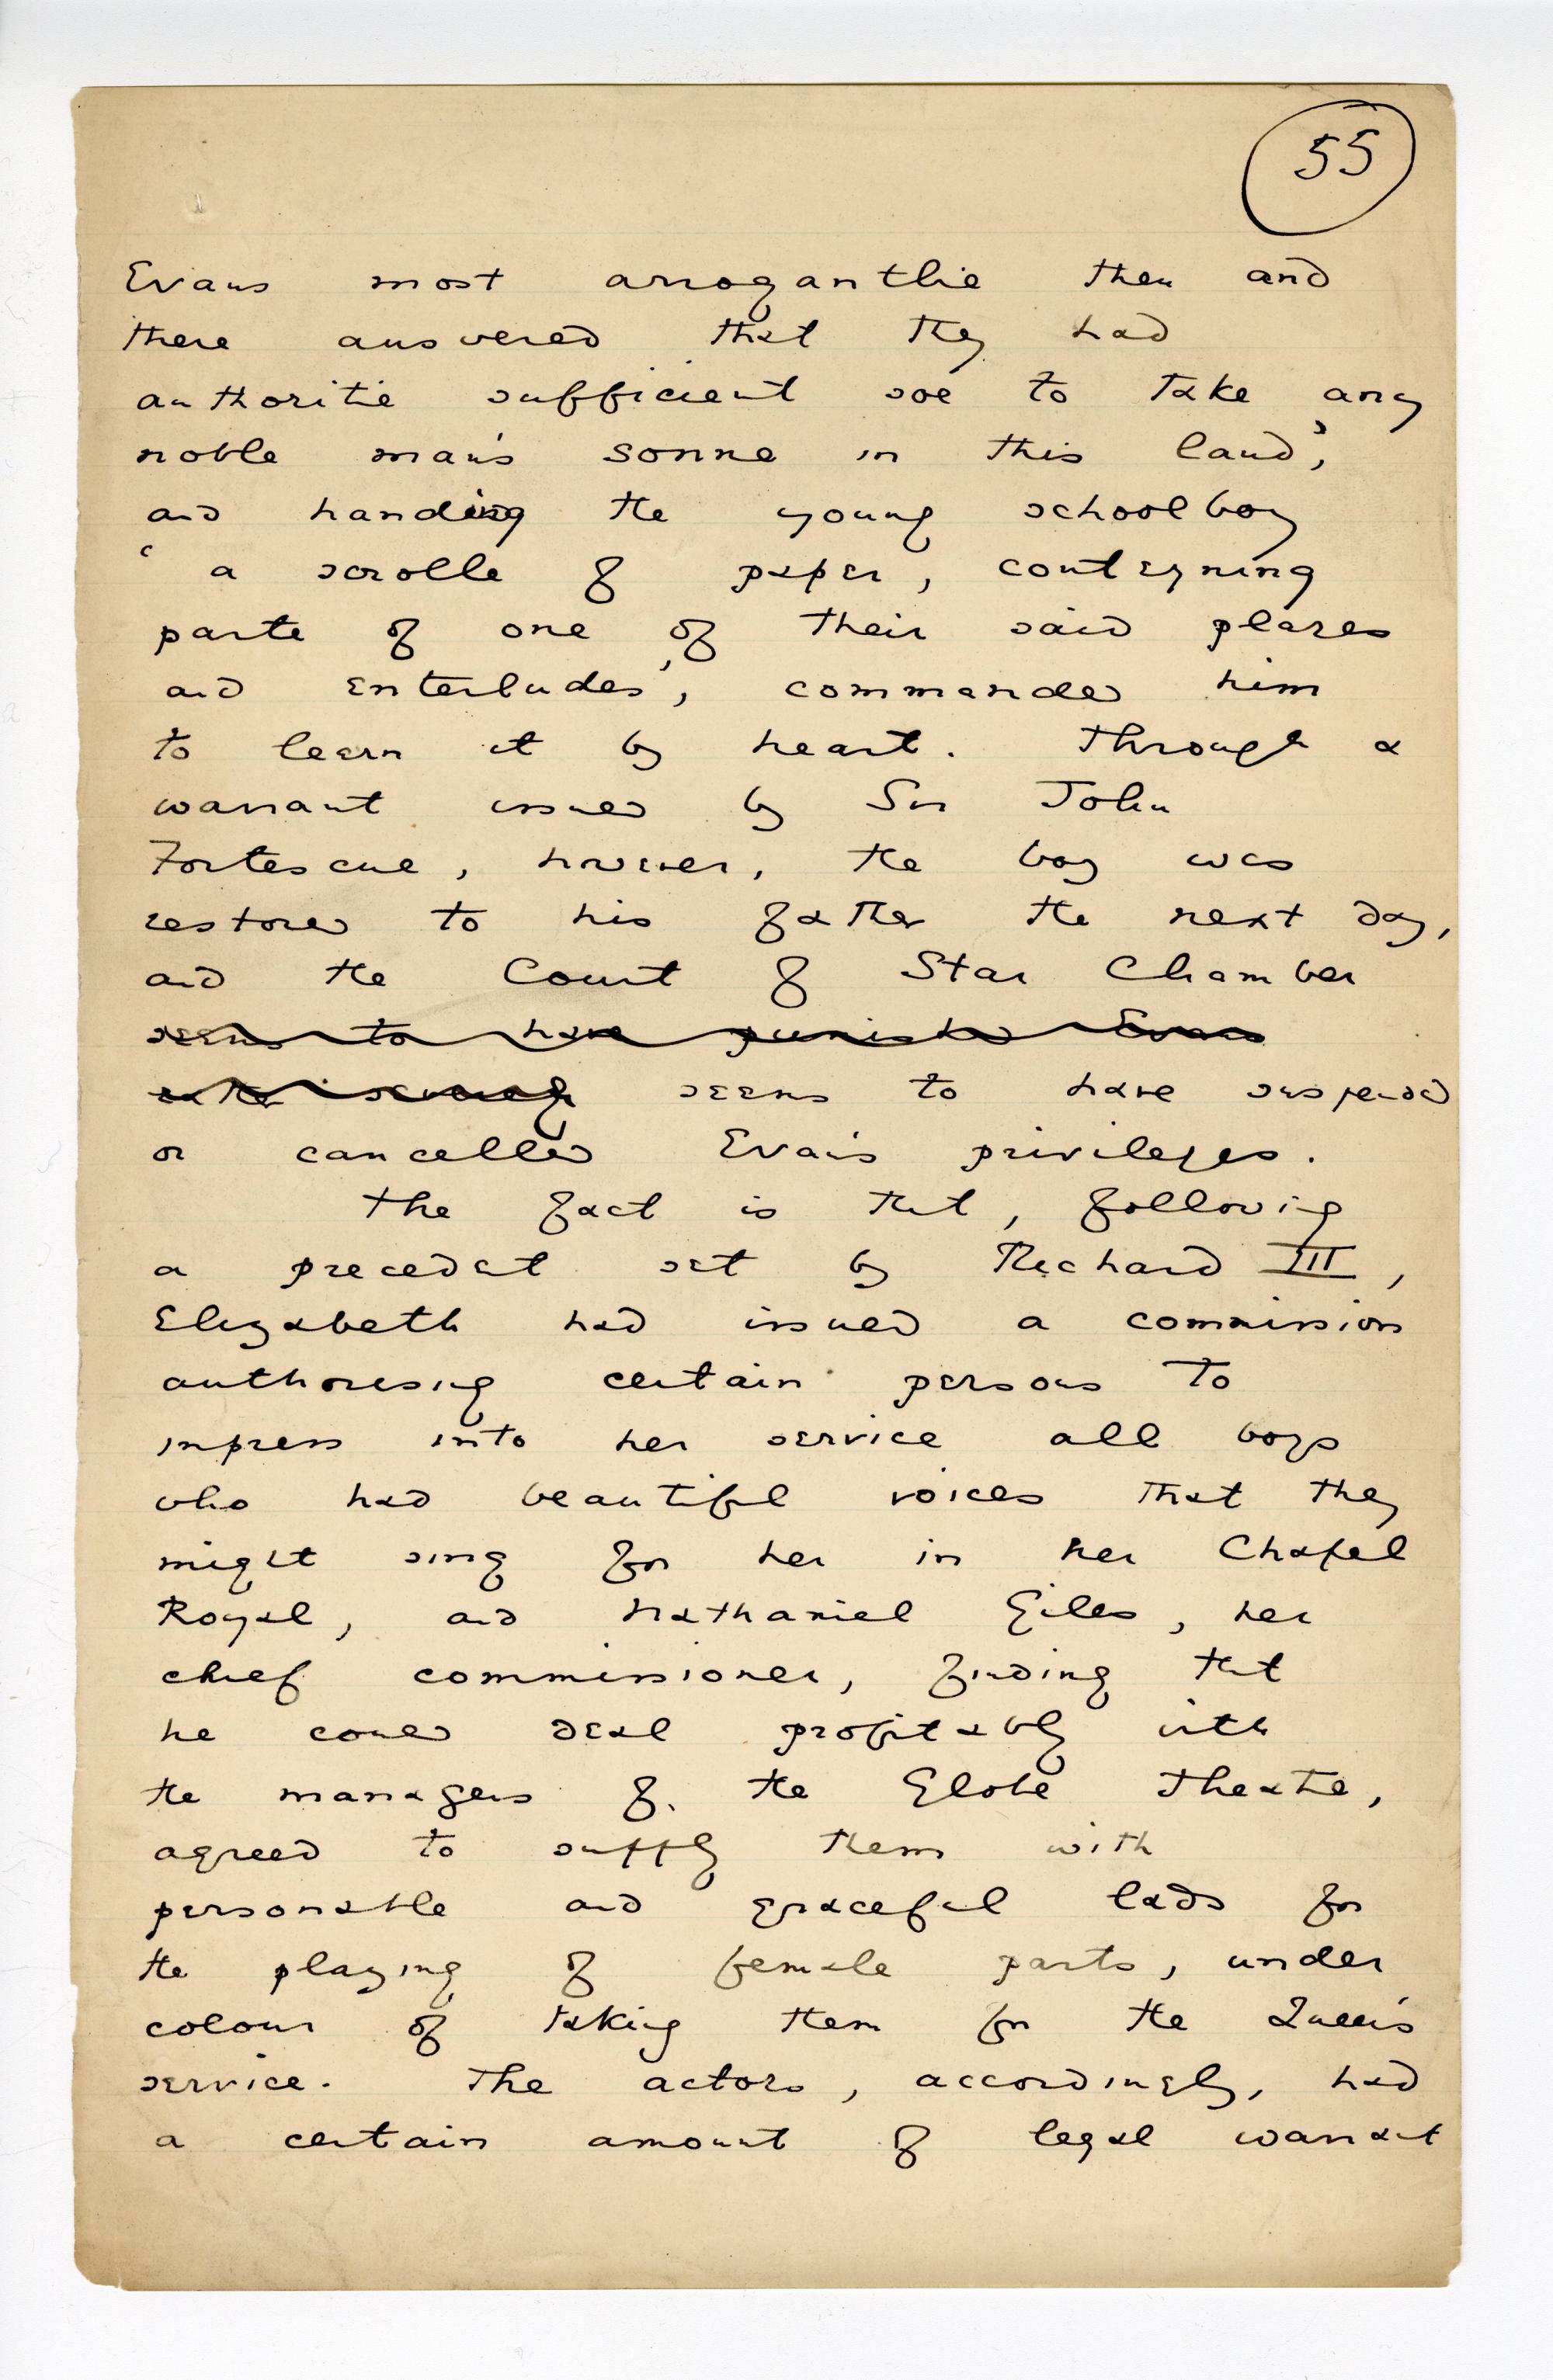 55
Evans most arroganthie then and
there answered that they had
authoritie sufficient soe to take any
noble man's sonne in this land',
and handing the young schoolboy
'a scrolle of paper, conteyning
parte of one of their said playes
and enterludes', commanded him
to learn it by heart. Through a
warrant issued by Sir John
Fortescue, however, the boy was
restored to his father the next day,
and the Court of Star Chamber
seems to have punished Evans
seems to have suspended
or cancelled Evans's privileges.
The fact is that, following
a precedent set by Richard III,
Elizabeth had issued a commission
authorising certain persons to
impress into her service all boys
who had beautiful voices that they
might sing for her in her Chapel
Royal, and Nathaniel Giles, her
chief commissioner, finding that
he could deal profitably with
the managers of the Globe Theatre,
agreed to supply them with
personable and graceful lads for
the playing of female parts, under
colour of taking them for the Queen's
service. The actors, accordingly, had
a certain amount of legal warrant